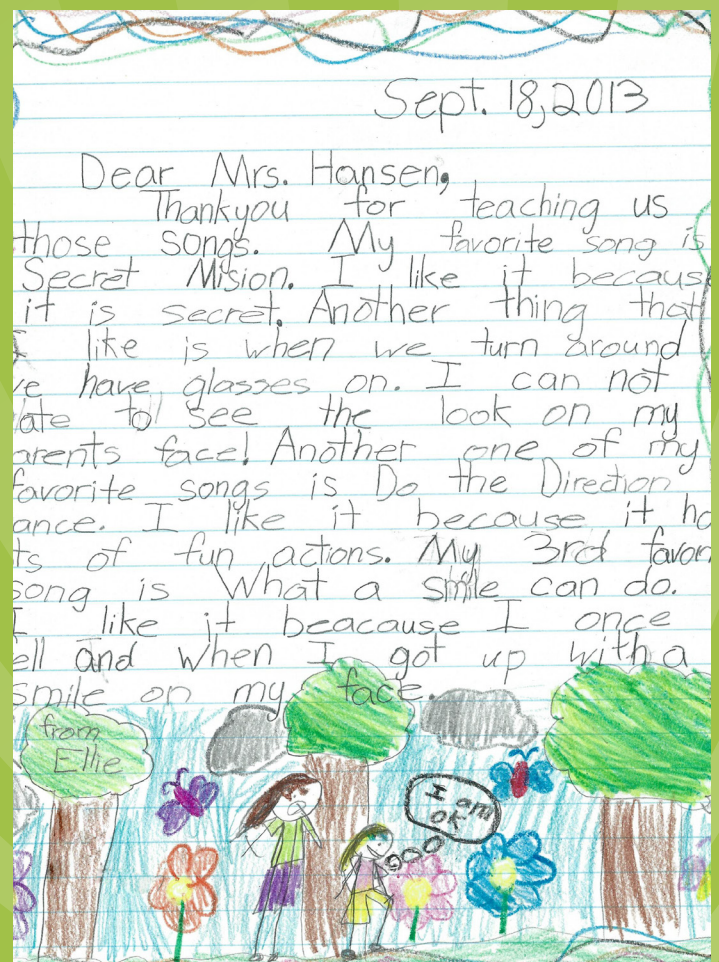 Sept. 18, 2013
Dear Mrs. Hansen,
Thankyou for teaching us
those songs. My favorite song is
Secret Mision. I like it becaus
it is secret. Another thing that
I like is when we turn around
ve have glasses on. I can not
ate to see the look on my
arents face! Another one of my
favorite songs is Do the Direction
ance. I like it because it ha
ts of fun actions. My 3rd favori
song is What a smile can do.
I like it beacause I once
ell and when I got up with a
smile on my face.
from
Ellie
I am
ok